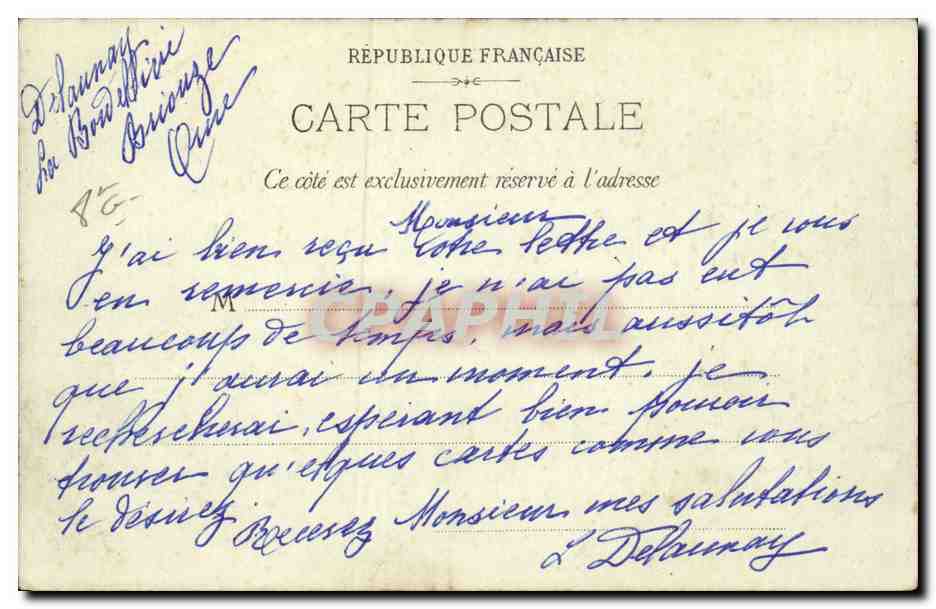 Delaunay
La Bordelerie
Briouze
Orne
RÉPUBLIQUE FRANÇAISE
CARTE POSTALE
Ce côté est exclusivement réservé à l'adresse
Monsieur
J'ai bien reçu votre lettre et je vous
en remercie, je n'ai pas eut
M
CPAPHIL
beaucoup de temps, mais aussitôt
que j'aurai un moment, je
rechercherai, espérant bien pouvoir
trouver qu'elques cartes comme vous
le désirez
Recevez Monsieur mes salutations
L Delaunay